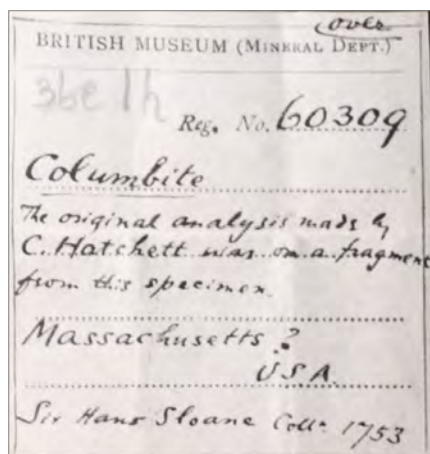 over
BRITISH MUSEUM (MINERAL DEPT.)
Reg. No. 60309
Columbite
The original analysis made by
C. Hatchett was on a fragment
from this specimen.
Massachusetts ?
U.S.A.
Sir Hans Sloane Colln. 1753